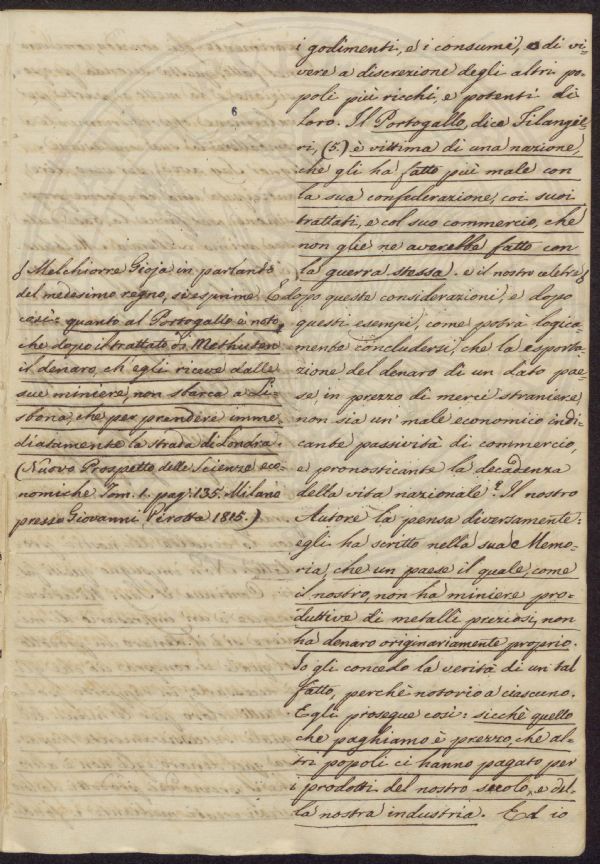 i godimenti, e i consumi, e di vi-
vere a discrezione degli altri po-
poli più ricchi, e potenti di
loro. Il Portogallo, dice Filangie-
ri, (5.) è vittima di una nazione,
che gli ha fatto più male con
la sua confederazione, coi suoi
trattati, e col suo commercio, che
non glie ne averebbe fatto con
la guerra stessa. e il nostro celebre
Melchiorre Gioja in parlando
del medesimo regno, si esprime
così: quanto al Portogallo è noto,
che dopo il trattato di Methuen
il denaro, ch'egli riceve dalle
sue miniere, non sbarca a Li-
sbona, che per prendere imme-
diatamente la strada di Londra.
(Nuovo Prospetto delle Scienze eco-
nomiche Tom. 1. pag. 135. Milano
presso Giovanni Pirotta 1815.)
E dopo queste considerazioni, e dopo
questi esempi, come potrà logica-
mente concludersi, che la esporta-
zione del denaro di un dato pae-
se, in prezzo di merci straniere
non sia un male economico indi-
cante passività di commercio,
e pronosticante la decadenza
della vita nazionale? Il nostro
Autore la pensa diversamente:
egli ha scritto nella sua Memo-
ria, che un paese il quale, come
il nostro, non ha miniere pro-
duttive di metalli preziosi, non
ha denaro originariamente proprio.
Io gli concedo la verità di un tal
fatto, perchè notorio a ciascuno.
Egli prosegue così: sicchè quello
che paghiamo è prezzo, che al-
tri popoli ci hanno pagato per
i prodotti del nostro suolo, e del-
la nostra industria. Ed io